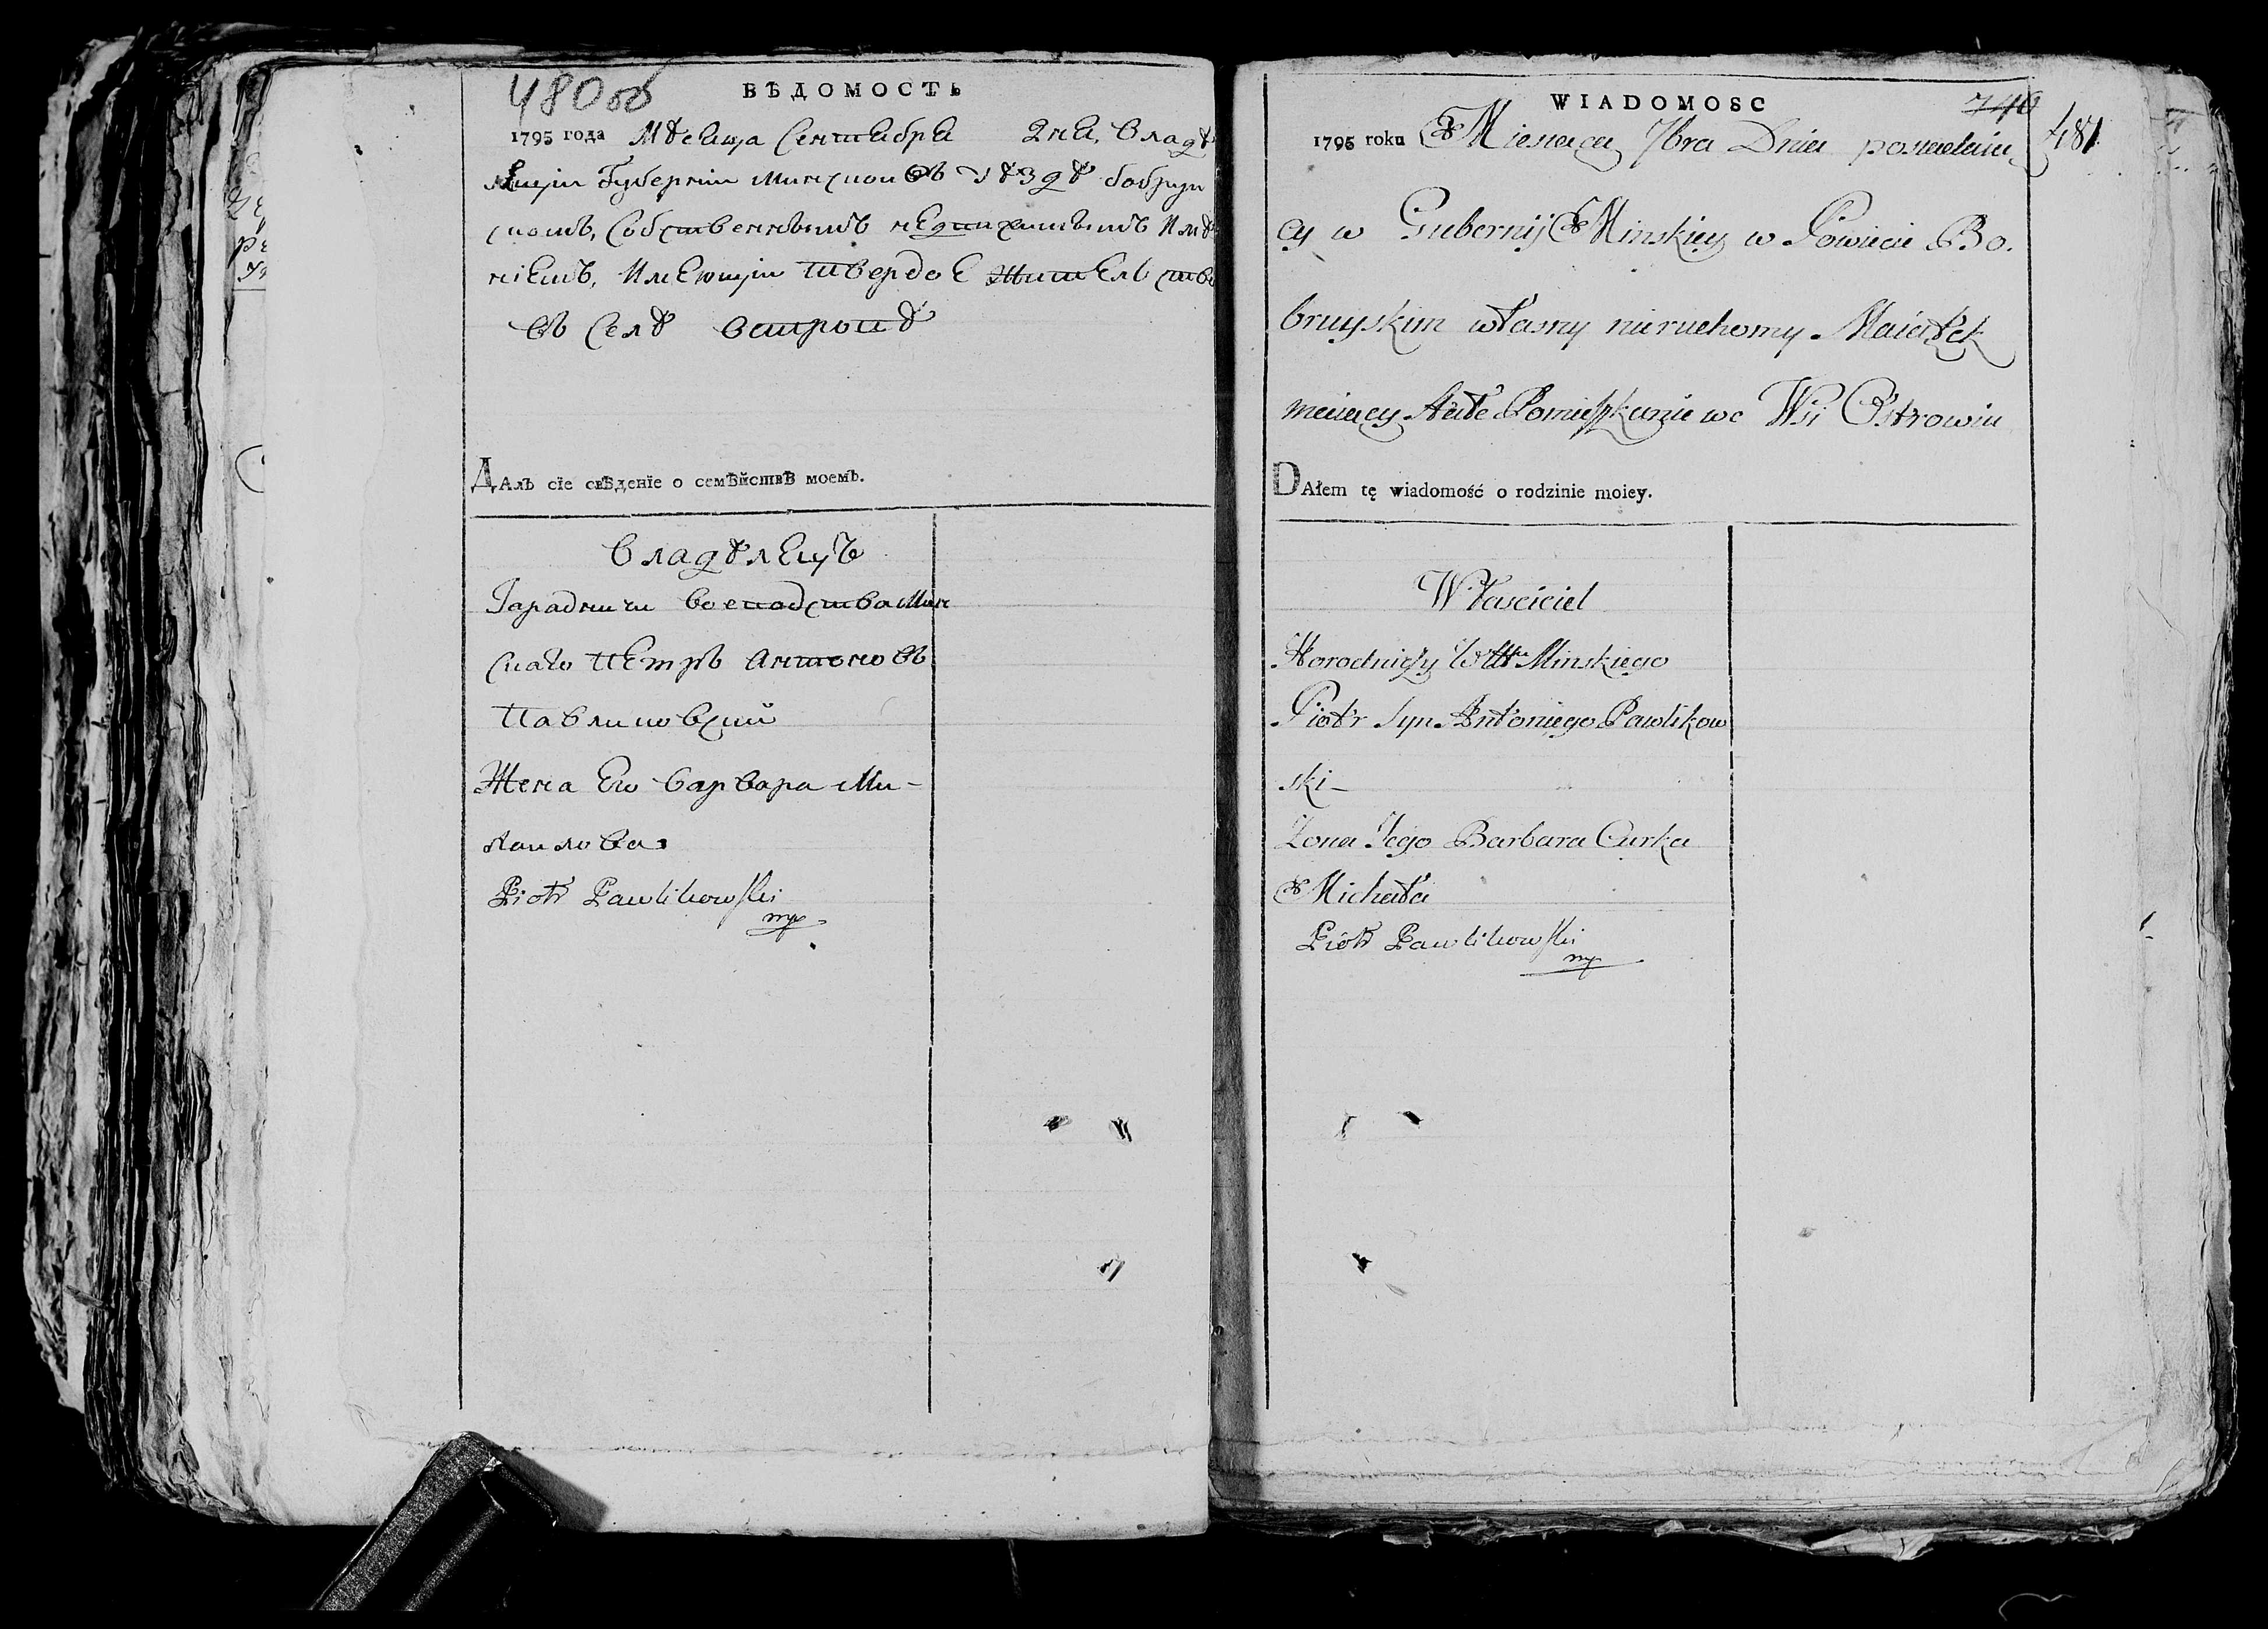 480об
ВѢДОМОСТЬ
1795 года Мѣсяца Сентября дня, Владѣ
ющїи Губернїи Минскои въ уѣздѣ бобруи
скомъ, Собственнымъ недвижимымъ Имѣ
нїемъ, Имеющїи твердое жительство
въ Селѣ
ДАлъ сїе свѣденїе о семѣйствѣ моемъ.
Владѣлецъ
Гараднич воеводства Мин
скаго Петръ Антоновъ
Павликовский
Жена Его Варвара Ми-
хаилова
Piotr Pawlikowski
mp
WIADOMOSC
740
481
1795 roku Miesiaca 7bra Dnia posiadaiu
cy w Gubernij Minskiey w Powiecie Bo.
bruyskim własny nieruchomy Maiątek
maiący Stałe Pomieszkanie we Wsi Ostrowiu
DAłem tę wiadomość o rodzinie moiey.
Własciciel
Horodniczy Minskiego
Piotr Syn Antoniego Pawlikow
ski-
Zona Jego Barbara Curka
Michała
Piotr Pawlikowski
mp